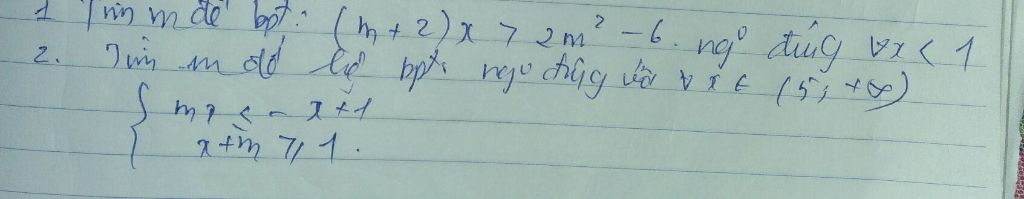 1 Tìm m để bpt: (m + 2) x > 2m² - 6. ngo đúng ∀x < 1
2. Tìm m để hệ bpt: ngo đúng với ∀ x ∈ (5; +∞)
{ mx ≤ - x + 1
x + m ≥ 1.